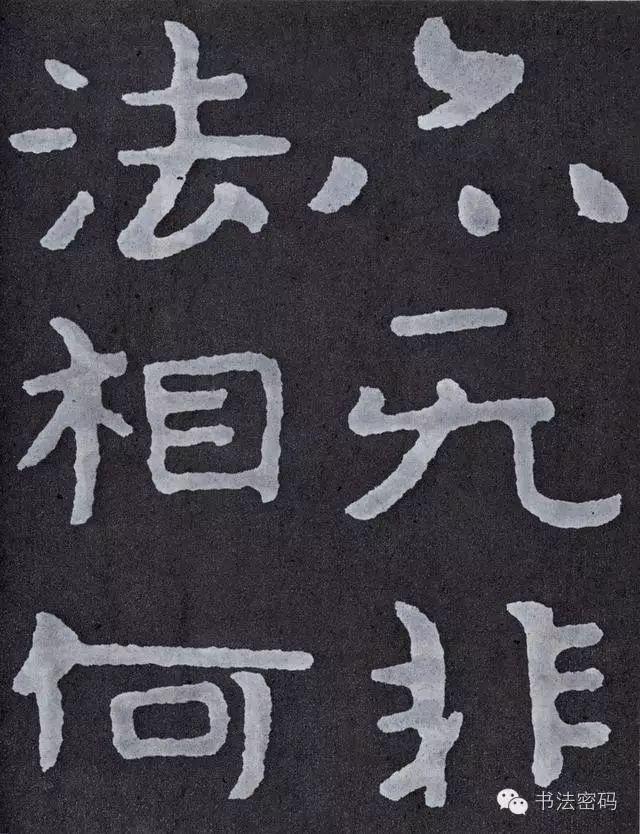 亦无非
法相何
书法密码